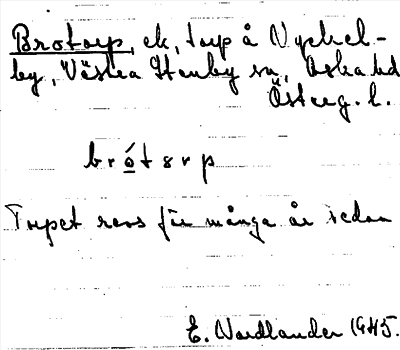 Brotorp, ek, torp å Nyckel-
by, Västra Stenby sn, Aska hd
Österg. l.
bró̲tsrp
Torpet revs för många år sedan
E. Nordlander 1945.